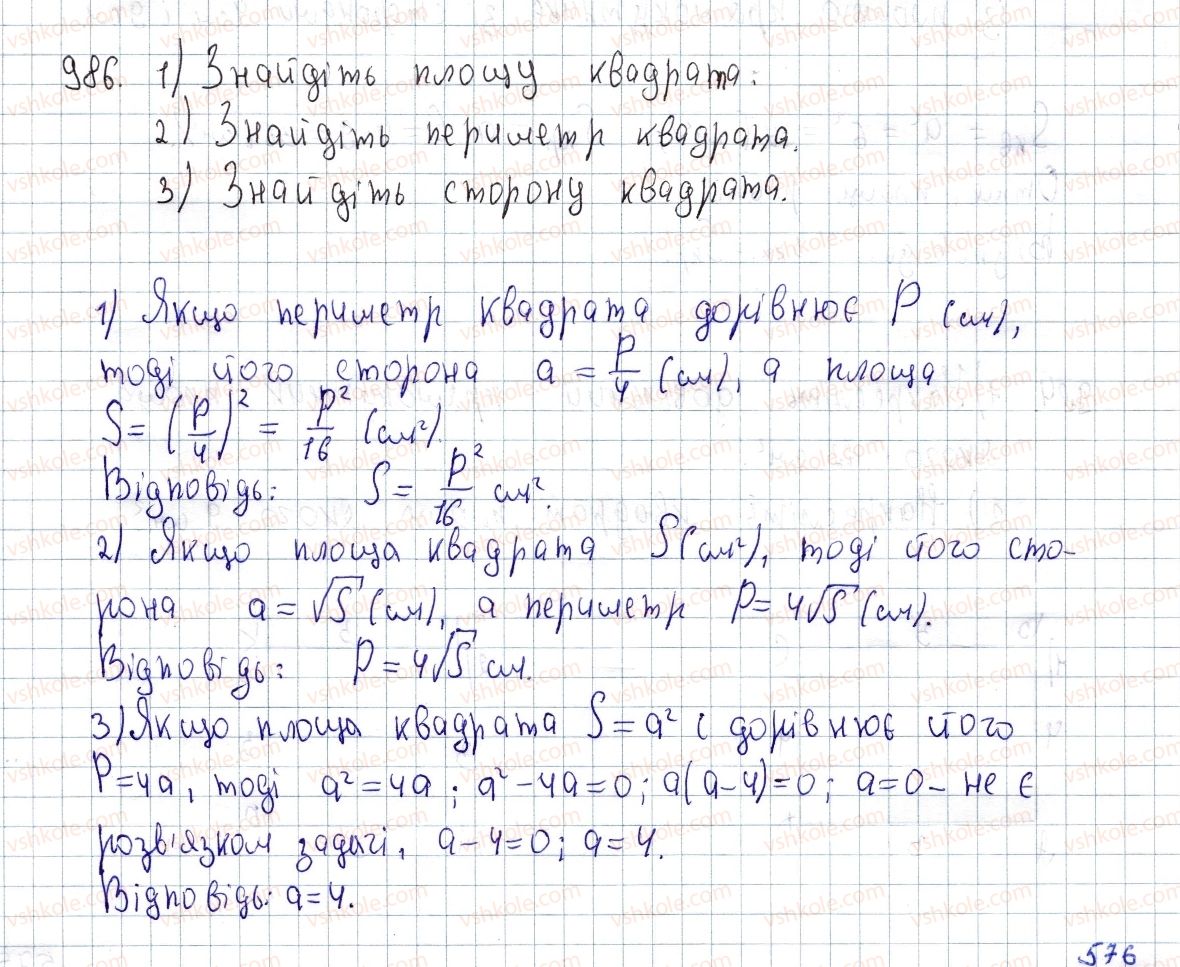 986. 1) Знайдіть площу квадрата.
2) Знайдіть периметр квадрата.
3) Знайдіть сторону квадрата.
1) Якщо периметр квадрата дорівнює P (см),
тоді його сторона a = P/4 (см), а площа
S = (P/4)² = P²/16 (см²).
Відповідь: S = P²/16 см².
2) Якщо площа квадрата S (см²), тоді його сто-
рона a = √S (см), а периметр P = 4√S (см).
Відповідь: P = 4√S см.
3) Якщо площа квадрата S = a² і дорівнює його
P = 4a, тоді a² = 4a; a² - 4a = 0; a(a - 4) = 0; a = 0 - не є
розв'язком задачі, a - 4 = 0; a = 4.
Відповідь: a = 4.
576